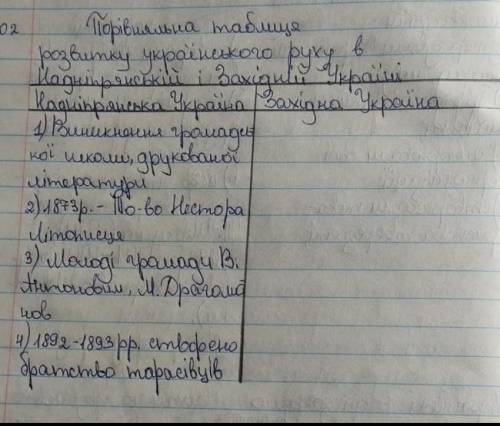 02 Порівняльна таблиця
розвитку українського руху в
Наддніпрянській і Західній Україні
Наддніпрянська Україна Західна Україна
1) Виникнення громадсь
кої школи, друкованої
літератури
2) 1873р. - То-во Нестора
Літописця
3) Молоді громади В.
Антонович, М. Драгома
нов
4) 1892-1893 рр. створено
братство тарасівців